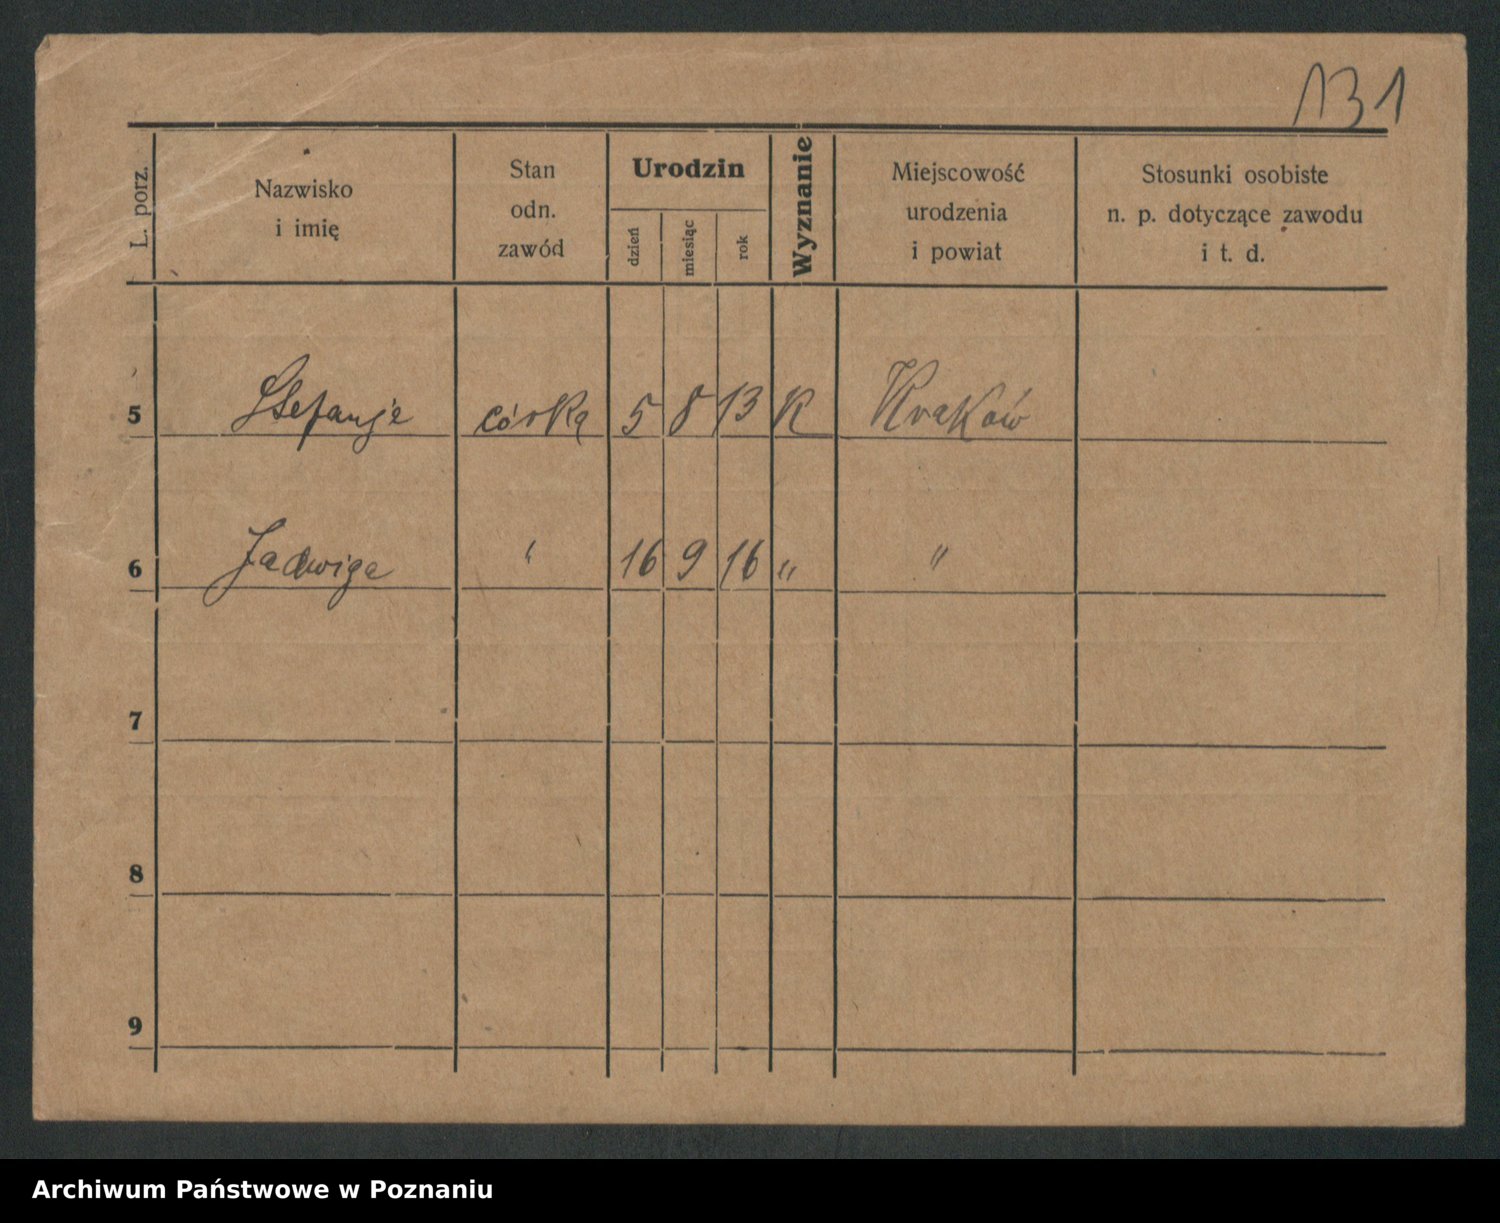 131
L. porz.
Nazwisko
i imię
Stan
odn.
zawód
Urodzin
dzień
miesiąc
rok
Wyznanie
Miejscowość
urodzenia
i powiat
Stosunki osobiste
n. p. dotyczące zawodu
i t. d.
5 Stefanje córka 5 8 13 K Kraków
6 Jadwiga " 16 9 16 " "
7
8
9
Archiwum Państwowe w Poznaniu